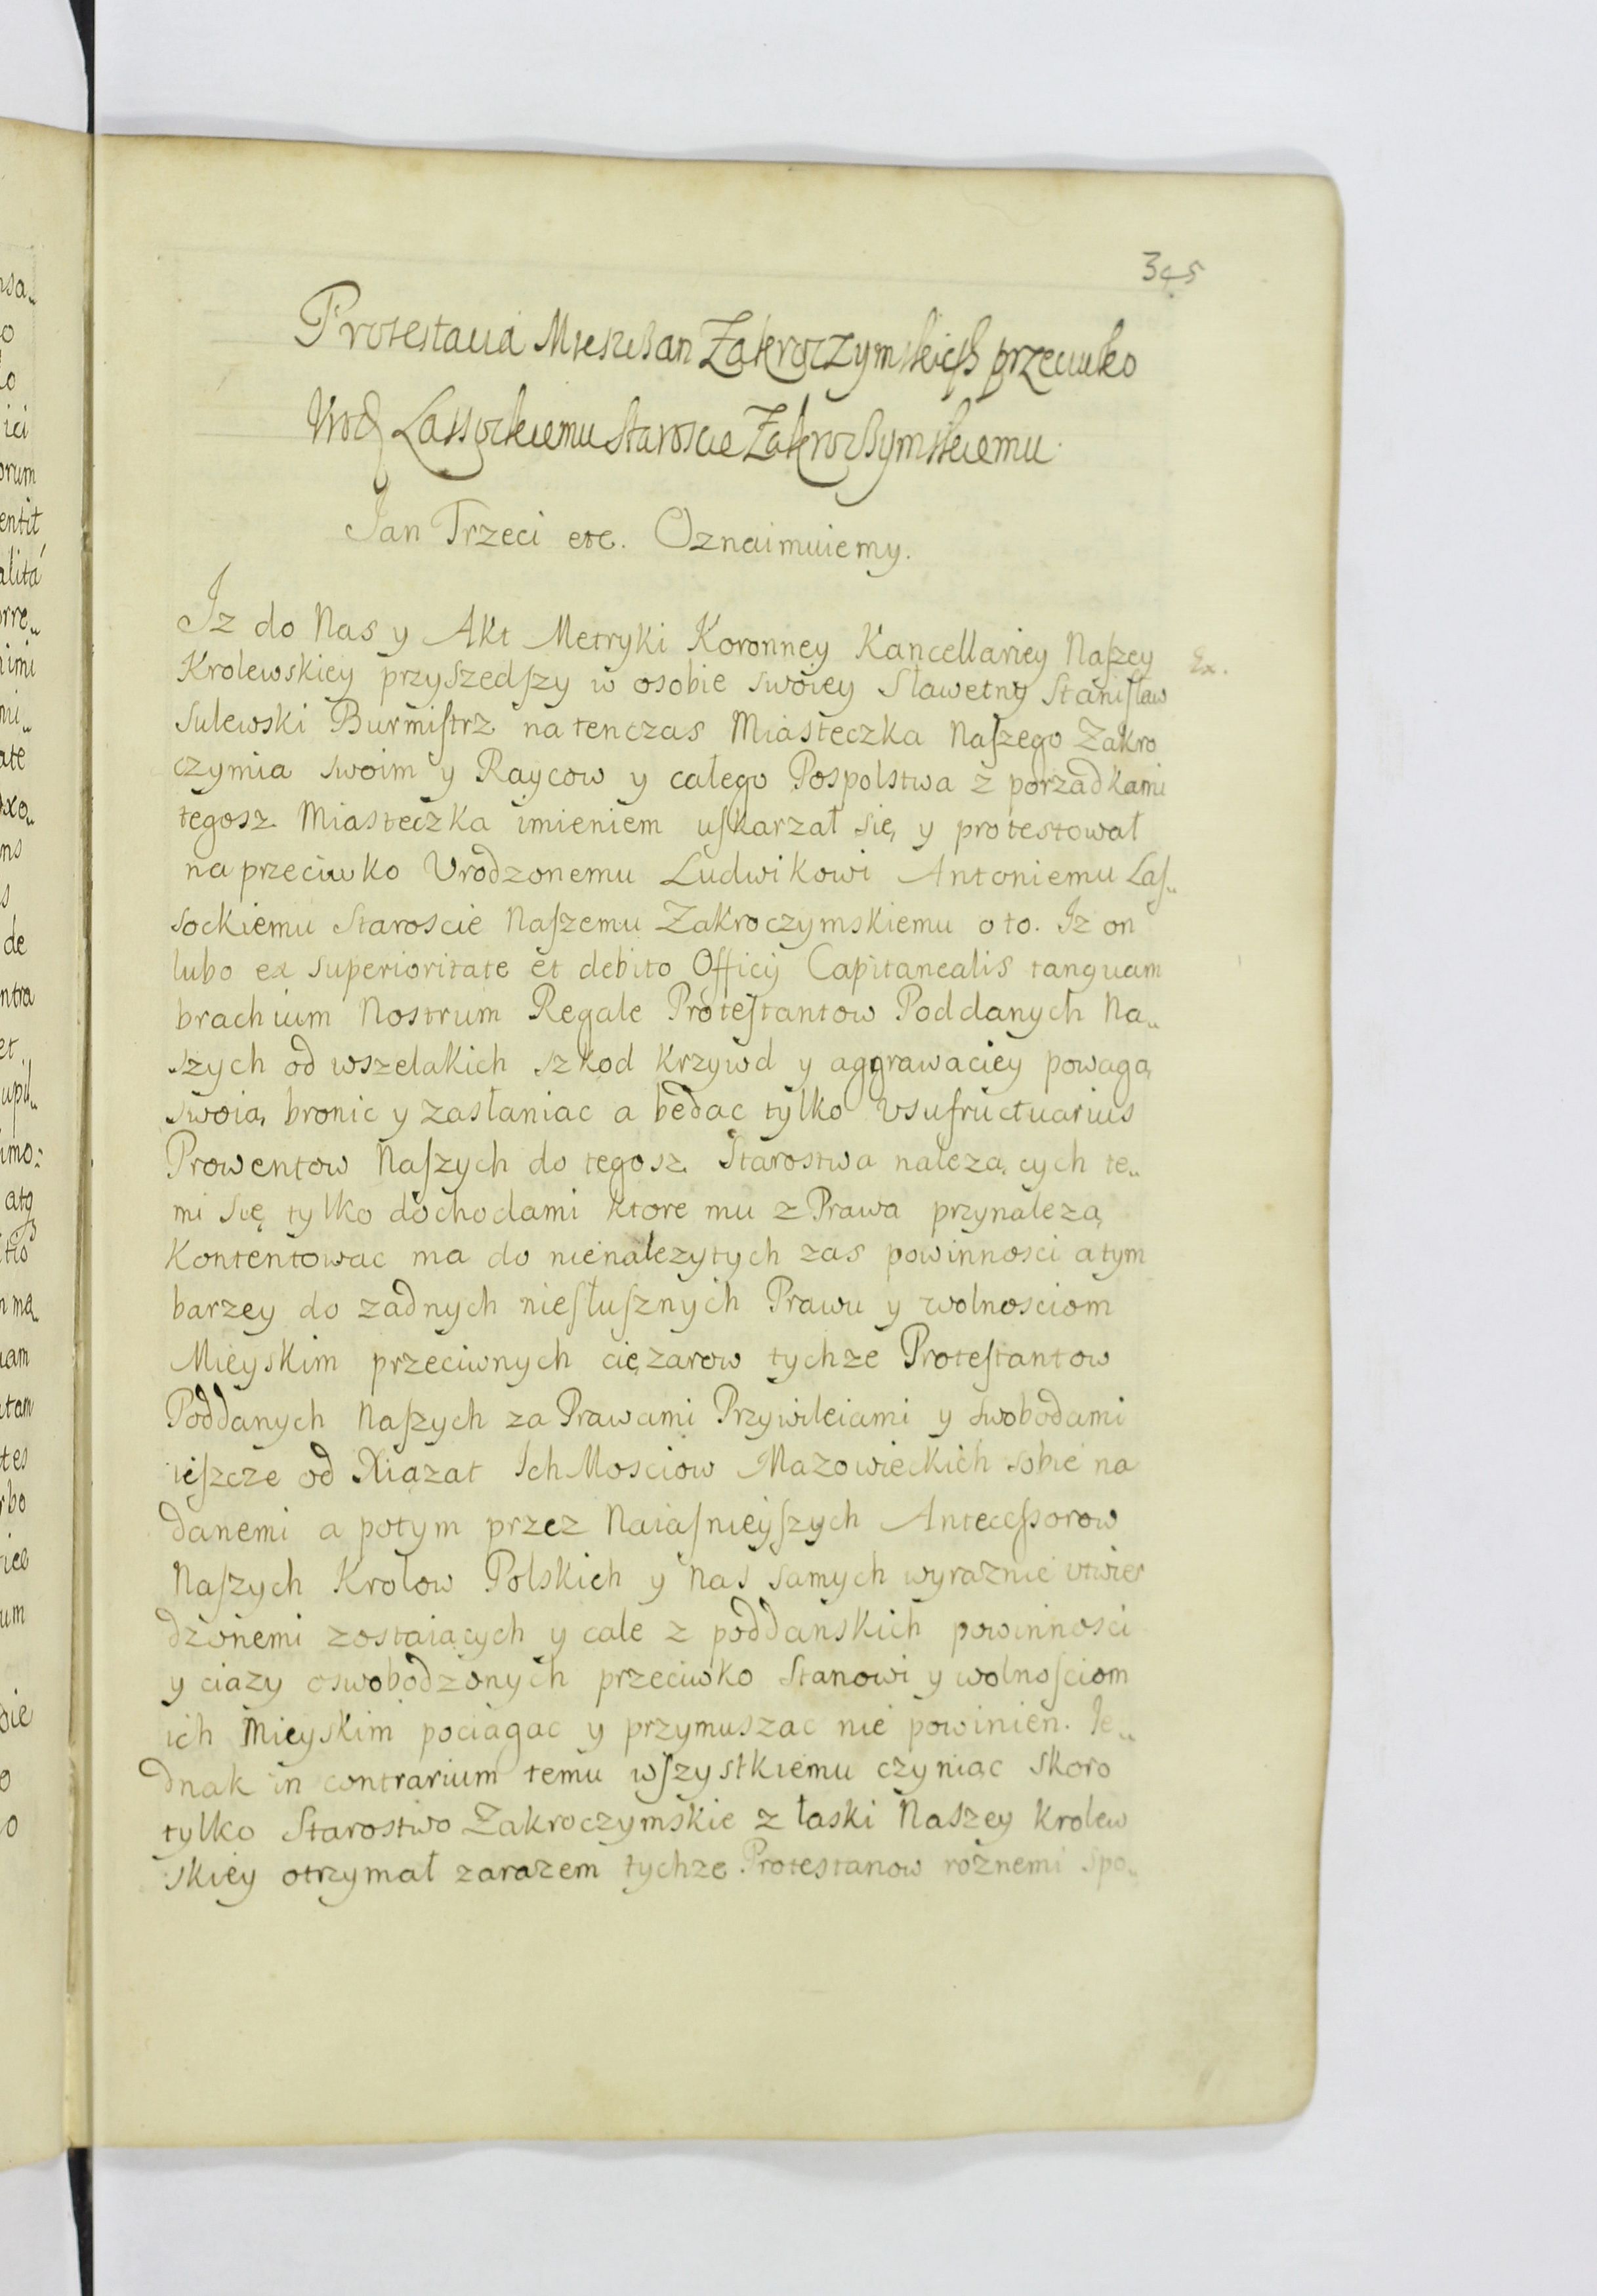 345
Protestatia Miesczan Zakroczymskich przeciwko
Urod Lassockiemu Staroscie Zakroczymskiemu
Jan Trzeci etc. Oznaimuiemy.
Iz do Nas y Akt Metryki Koronney Kancellariey Naſzey
Ex.
Krolewskiey przyszedſzy w osobie swoiey Sławetny Staniſław
Sulewski Burmiſtrz na tenczas Miasteczka Naſzego Zakro
czymia swoim y Raycow y całego Pospolstwa z porządkami
tegosz Miasteczka imieniem uſkarzał się, y protestował
na przeciwko Vrodzonemu Ludwikowi Antoniemu Laſ„
sockiemu Staroscie Naſzemu Zakroczymskiemu o to. Iz on
lubo ex superioritate et debito Officij Capitanealis tanquam
brachium Nostrum Regale Proteſtantow Poddanych Na„
szych od wszelakich szkod krzywd y aggrawaciey powagą
swoią bronic y zasłaniac a bedąc tylko vsufructuarius
Prowentow Naſzych do tegosz Starostwa nalezących te„
mi się tylko dochodami ktore mu z Prawa przynalezą
Kontentowac ma do nienalezytych zas powinnosci a tym
barzey do zadnych nieſłuſznych Prawu y wolnosciom
Mieyskim przeciwnych ciężarow tychze Proteſtantow
Poddanych Naſzych za Prawami Przywileiami y swobodami
ieſzcze od Xiązat Ich Mosciow Mazowieckich sobie na
danemi a potym przez Naiaſnieyſzych Anteceſsorow
Naſzych Krolow Polskich y Nas samych wyraznie vtwier
dzonemi zostaiących y cale z poddanskich powinnosci
y ciązy oswobodzonych przeciwko Stanowi y wolnoſciom
ich Mieyskim pociągac y przymuszac nie powinien. Ie„
dnak in contrarium temu wſzystkiemu czyniąc skoro
tylko Starostwo Zakroczymskie z łaski Naszey Krolew
skiey otrzymał zarazem tychze Protestanow roznemi spo„